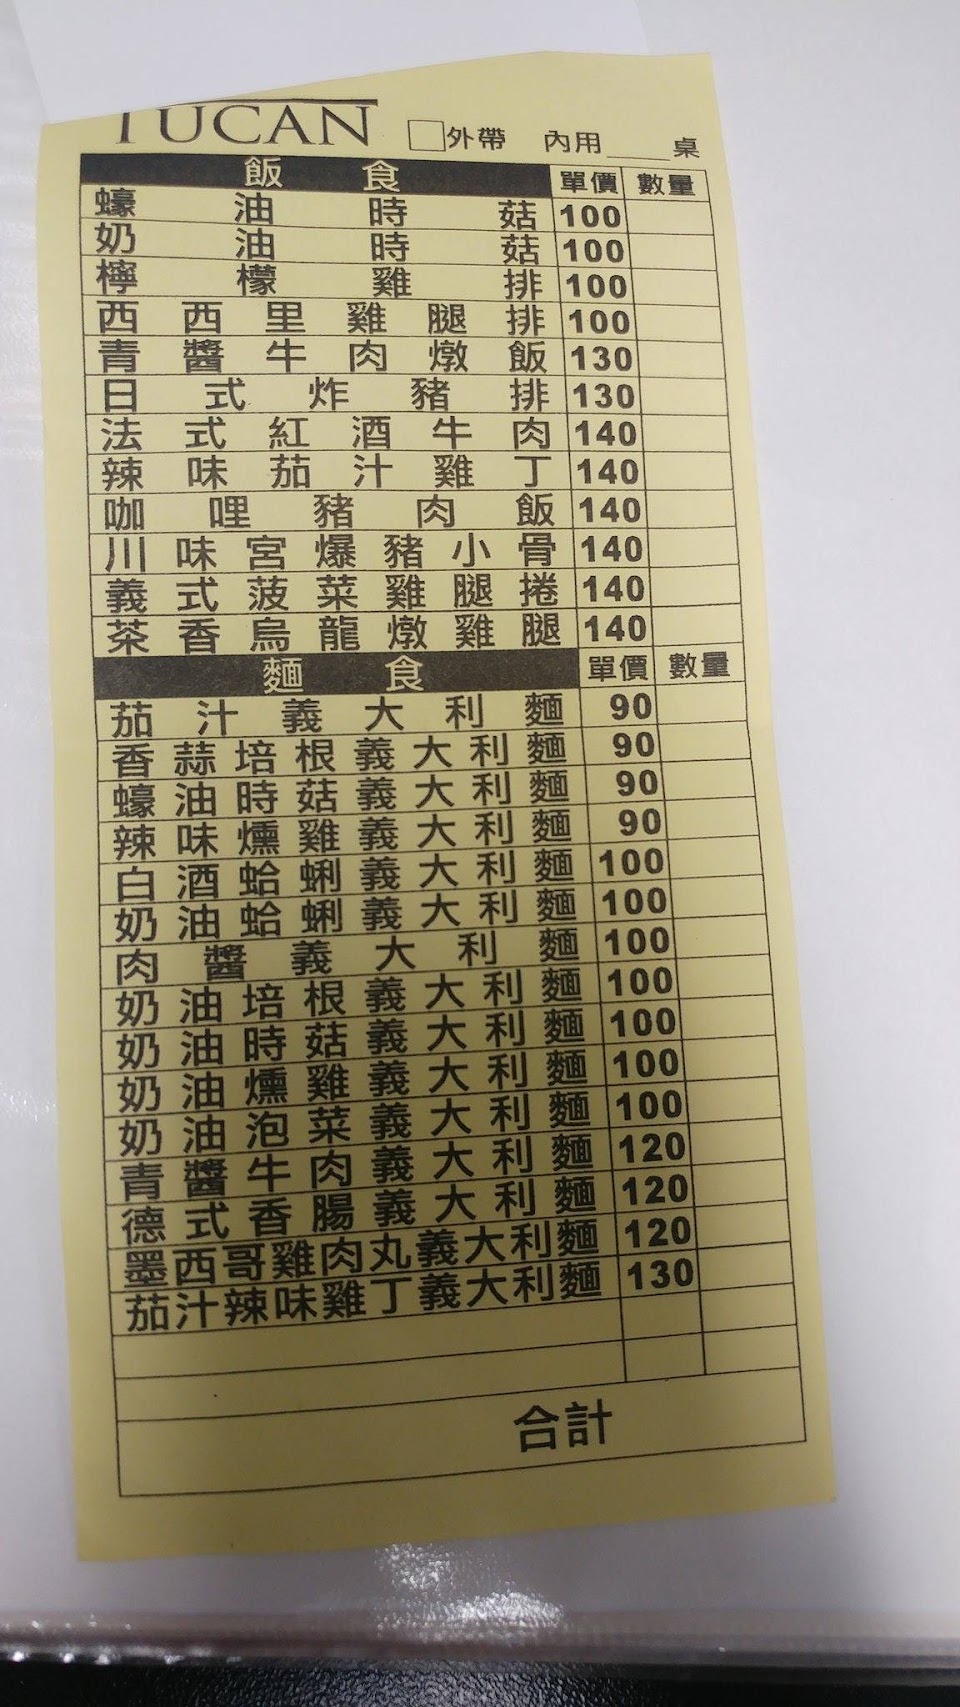 TUCAN □外帶 內用____桌
飯食 單價 數量
蠔油時菇 100
奶油時菇 100
檸檬雞排 100
西西里雞腿排 100
青醬牛肉燉飯 130
日式炸豬排 130
法式紅酒牛肉 140
辣味茄汁雞丁 140
咖哩豬肉飯 140
川味宮爆豬小骨 140
義式菠菜雞腿捲 140
茶香烏龍燉雞腿 140
麵食 單價 數量
茄汁義大利麵 90
香蒜培根義大利麵 90
蠔油時菇義大利麵 90
辣味燻雞義大利麵 90
白酒蛤蜊義大利麵 100
奶油蛤蜊義大利麵 100
肉醬義大利麵 100
奶油培根義大利麵 100
奶油時菇義大利麵 100
奶油燻雞義大利麵 100
奶油泡菜義大利麵 100
青醬牛肉義大利麵 120
德式香腸義大利麵 120
墨西哥雞肉丸義大利麵 120
茄汁辣味雞丁義大利麵 130
合計